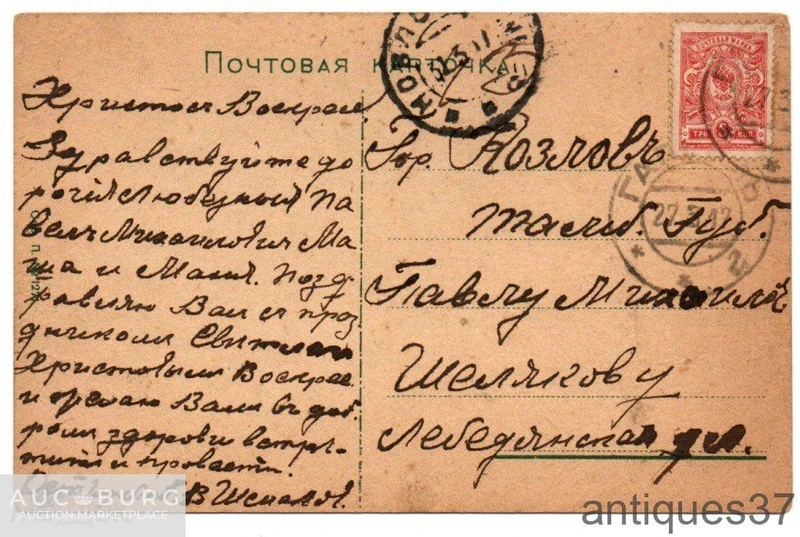 Почтовая карточка
Христосъ Воскресе!
Здравствуйте до
рогія Любезный Па
велъ Михаиловичъ Ма
ша и Маня. Позд
равляю Вас съ праз
дникомъ Свѣтлаго
Христовымъ Воскрес.
и желаю Вамъ въ доб
ромъ здоровьи встрѣ-
тить и провести.
В Шемяковъ.
Гор. Козловъ
Тамб. Губ.
Павлу Михайлов
Шемякову
Лебедянская ул.
ПОЧТОВАЯ МАРКА
ТРИ КОП.
27.3.17
AUCBURG
AUCTION MARKETPLACE
antiques37